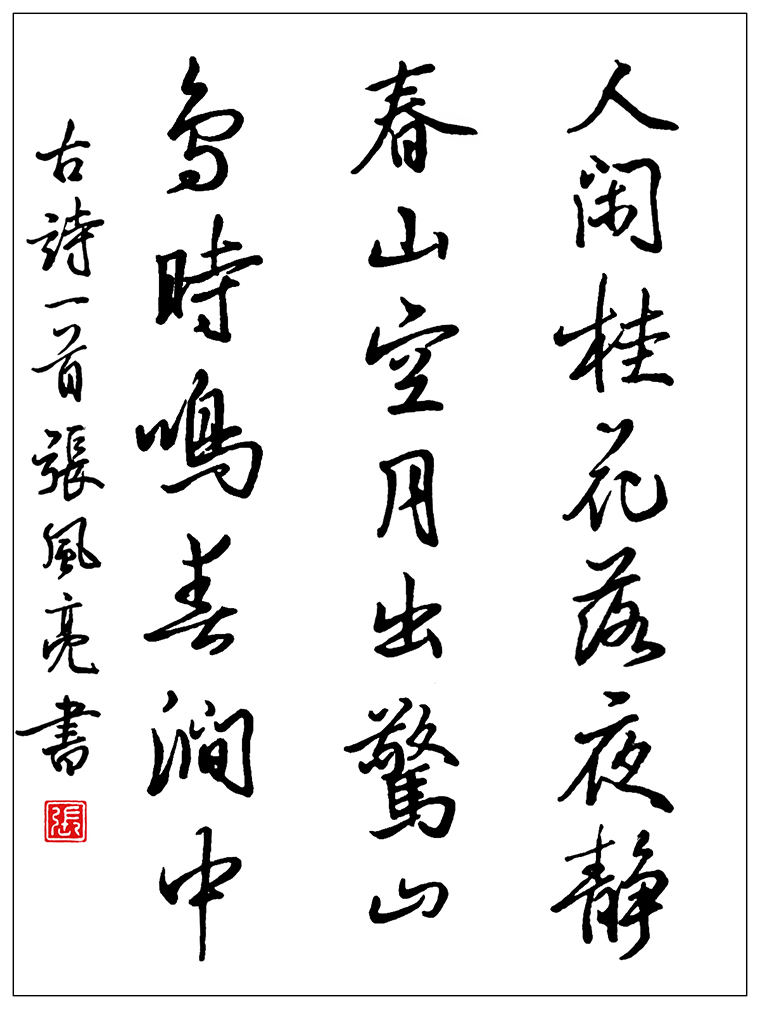 人閑桂花落夜靜
春山空月出驚山
鳥時鳴春澗中
古詩一首張風亮書
張